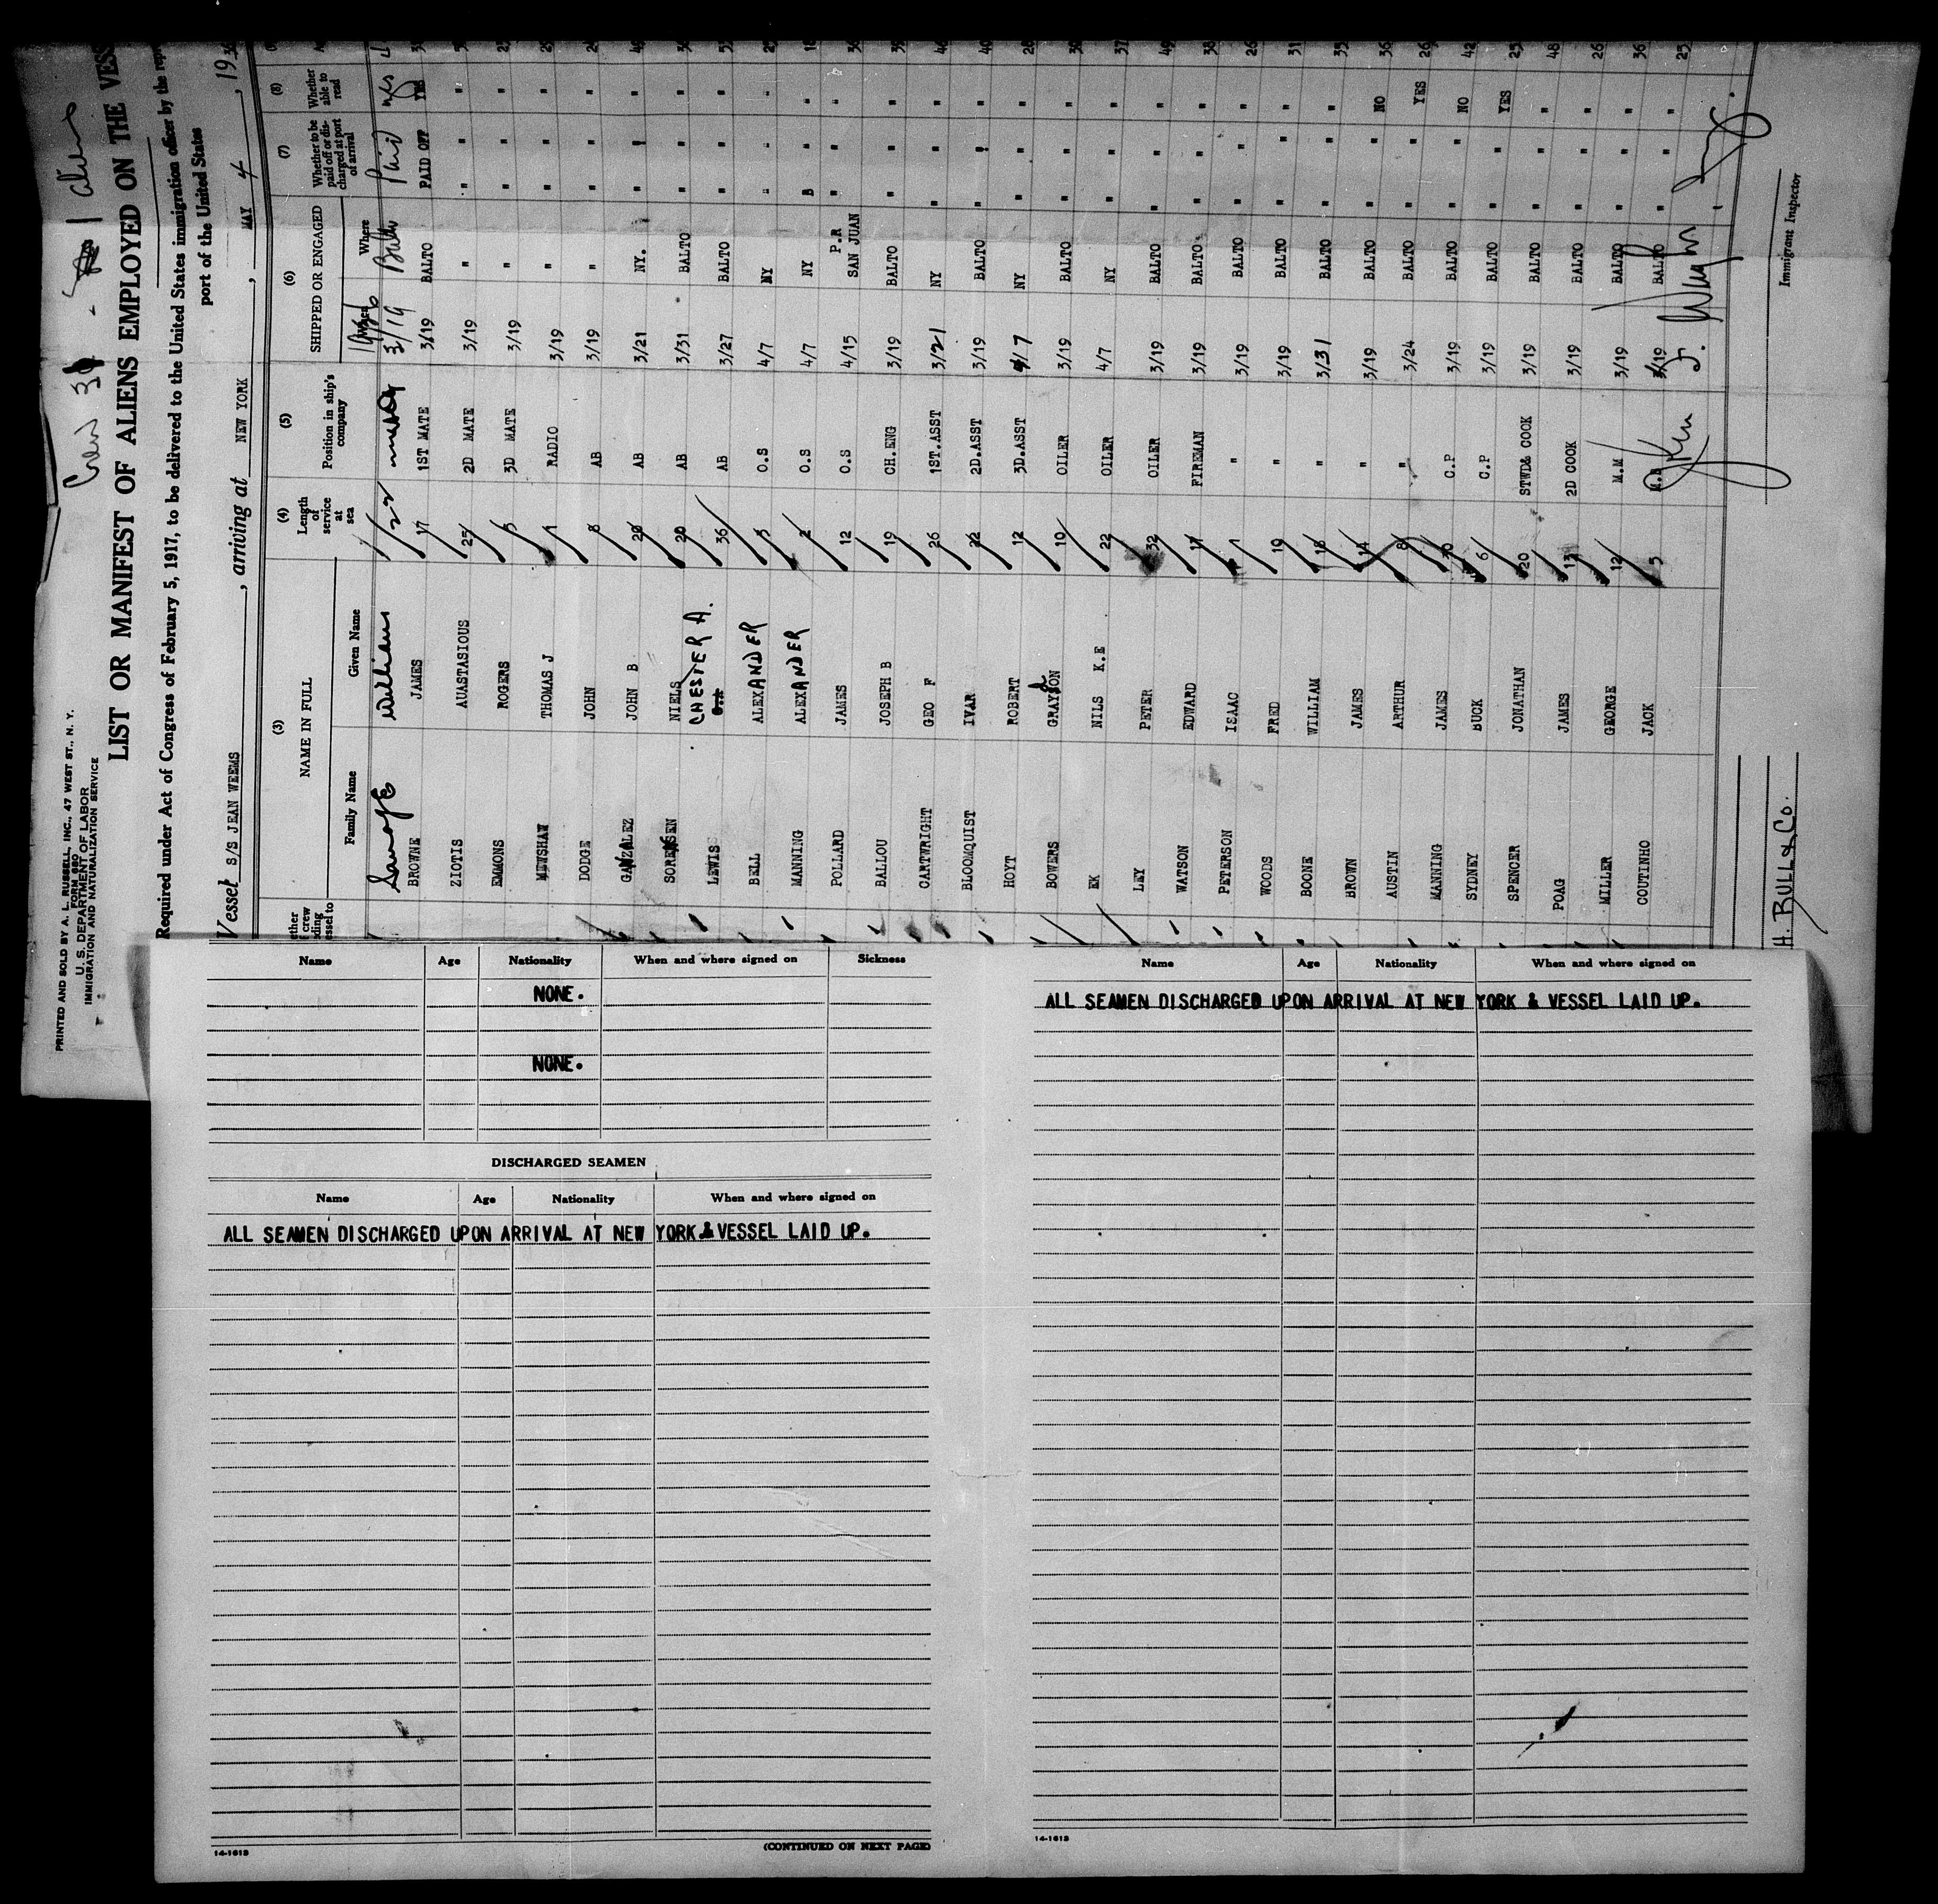 Crew 31 - 1 alien
PRINTED AND SOLD BY A. L. RUSSELL, INC., 47 WEST ST., N. Y.
FORM 680
U. S. DEPARTMENT OF LABOR
IMMIGRATION AND NATURALIZATION SERVICE
LIST OR MANIFEST OF ALIENS EMPLOYED ON THE VES
Required under Act of Congress of February 5, 1917, to be delivered to the United States immigration officer by the repr
port of the United States
Vessel S/S JEAN WEEMS, arriving at NEW YORK, MAY 4, 19
(3) (4) (5) (6) (7) (8)
NAME IN FULL Length of service at sea Position in ship's company SHIPPED OR ENGAGED Whether to be paid off or discharged at port of arrival Whether able to read
Family Name Given Name When Where
William 22 3/19 Balto Paid yes
BROWNE JAMES 17 1ST MATE 3/19 BALTO PAID OFF YES
ZIOTIS AUASTASIOUS 25 2D MATE 3/19 " " "
EMMONS ROGERS 5 3D MATE 3/19 " " "
MEWSHAW THOMAS J 1 RADIO 3/19 " " "
DODGE JOHN 8 AB 3/19 " " "
GANZALEZ JOHN B 20 AB 3/21 NY. " "
SORENSEN NIELS 20 AB 3/31 BALTO " "
LEWIS CHESTER A. 36 AB 3/27 BALTO " "
BELL ALEXANDER 3 O.S 4/7 NY " "
MANNING ALEXANDER 2 O.S 4/7 NY " "
POLLARD JAMES 12 O.S 4/15 P.R SAN JUAN " "
BALLOU JOSEPH B 19 CH.ENG 3/19 BALTO " "
CARTWRIGHT GEO F 26 1ST.ASST 3/21 NY " "
BLOOMQUIST IVAR 22 2D.ASST 3/19 BALTO " "
HOYT ROBERT 12 3D.ASST 4/7 NY " "
BOWERS GRAYSON 10 OILER 3/19 BALTO " "
EK NILS K.E 22 OILER 4/7 NY " "
LEY PETER 32 OILER 3/19 BALTO " "
WATSON EDWARD 17 FIREMAN 3/19 BALTO " "
PETERSON ISAAC 1 " 3/19 BALTO " "
WOODS FRED 19 " 3/19 BALTO " "
BOONE WILLIAM 18 " 3/31 BALTO " "
BROWN JAMES 14 " 3/19 BALTO " NO
AUSTIN ARTHUR 8 " 3/24 BALTO " YES
MANNING JAMES C.P 3/19 BALTO " NO
SYDNEY BUCK 6 C.P 3/19 BALTO " YES
SPENCER JONATHAN 20 STWD& COOK 3/19 BALTO " "
POAG JAMES 13 2D COOK 3/19 BALTO " "
MILLER GEORGE 12 M.M 3/19 BALTO " "
COUTINHO JACK 5 3/19 BALTO " "
Immigrant Inspector
H. BULL & Co.
Name Age Nationality When and where signed on Sickness
NONE.
NONE.
DISCHARGED SEAMEN
Name Age Nationality When and where signed on
ALL SEAMEN DISCHARGED UPON ARRIVAL AT NEW YORK & VESSEL LAID UP.
14-1613 (CONTINUED ON NEXT PAGE)
Name Age Nationality When and where signed on
ALL SEAMEN DISCHARGED UPON ARRIVAL AT NEW YORK & VESSEL LAID UP.
14-1613